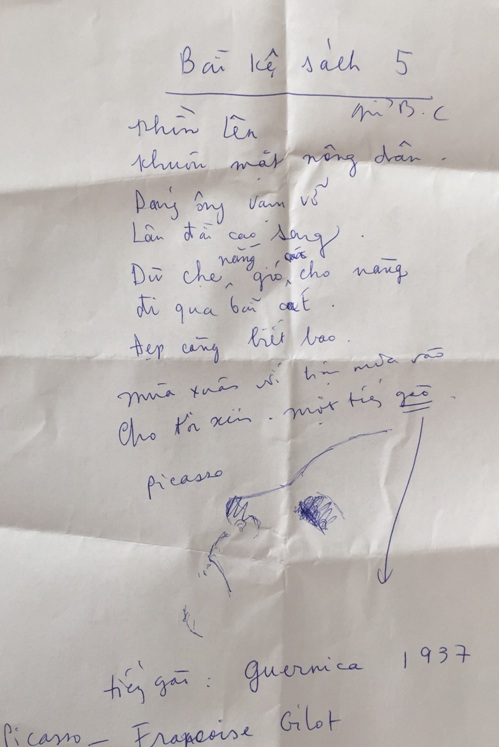 Bài kệ sách 5
gửi B.C
nhìn lên
khuôn mặt nông dân.
Dáng ông vạm vỡ
Lâu đài cao sang.
Dù che nắng gió, cho nàng
đi qua bãi cát.
Đẹp càng biết bao.
mùa xuân
Cho tôi xin. một tiếng
picasso
tiếng : guernica 1937
Picasso – Françoise Gilot